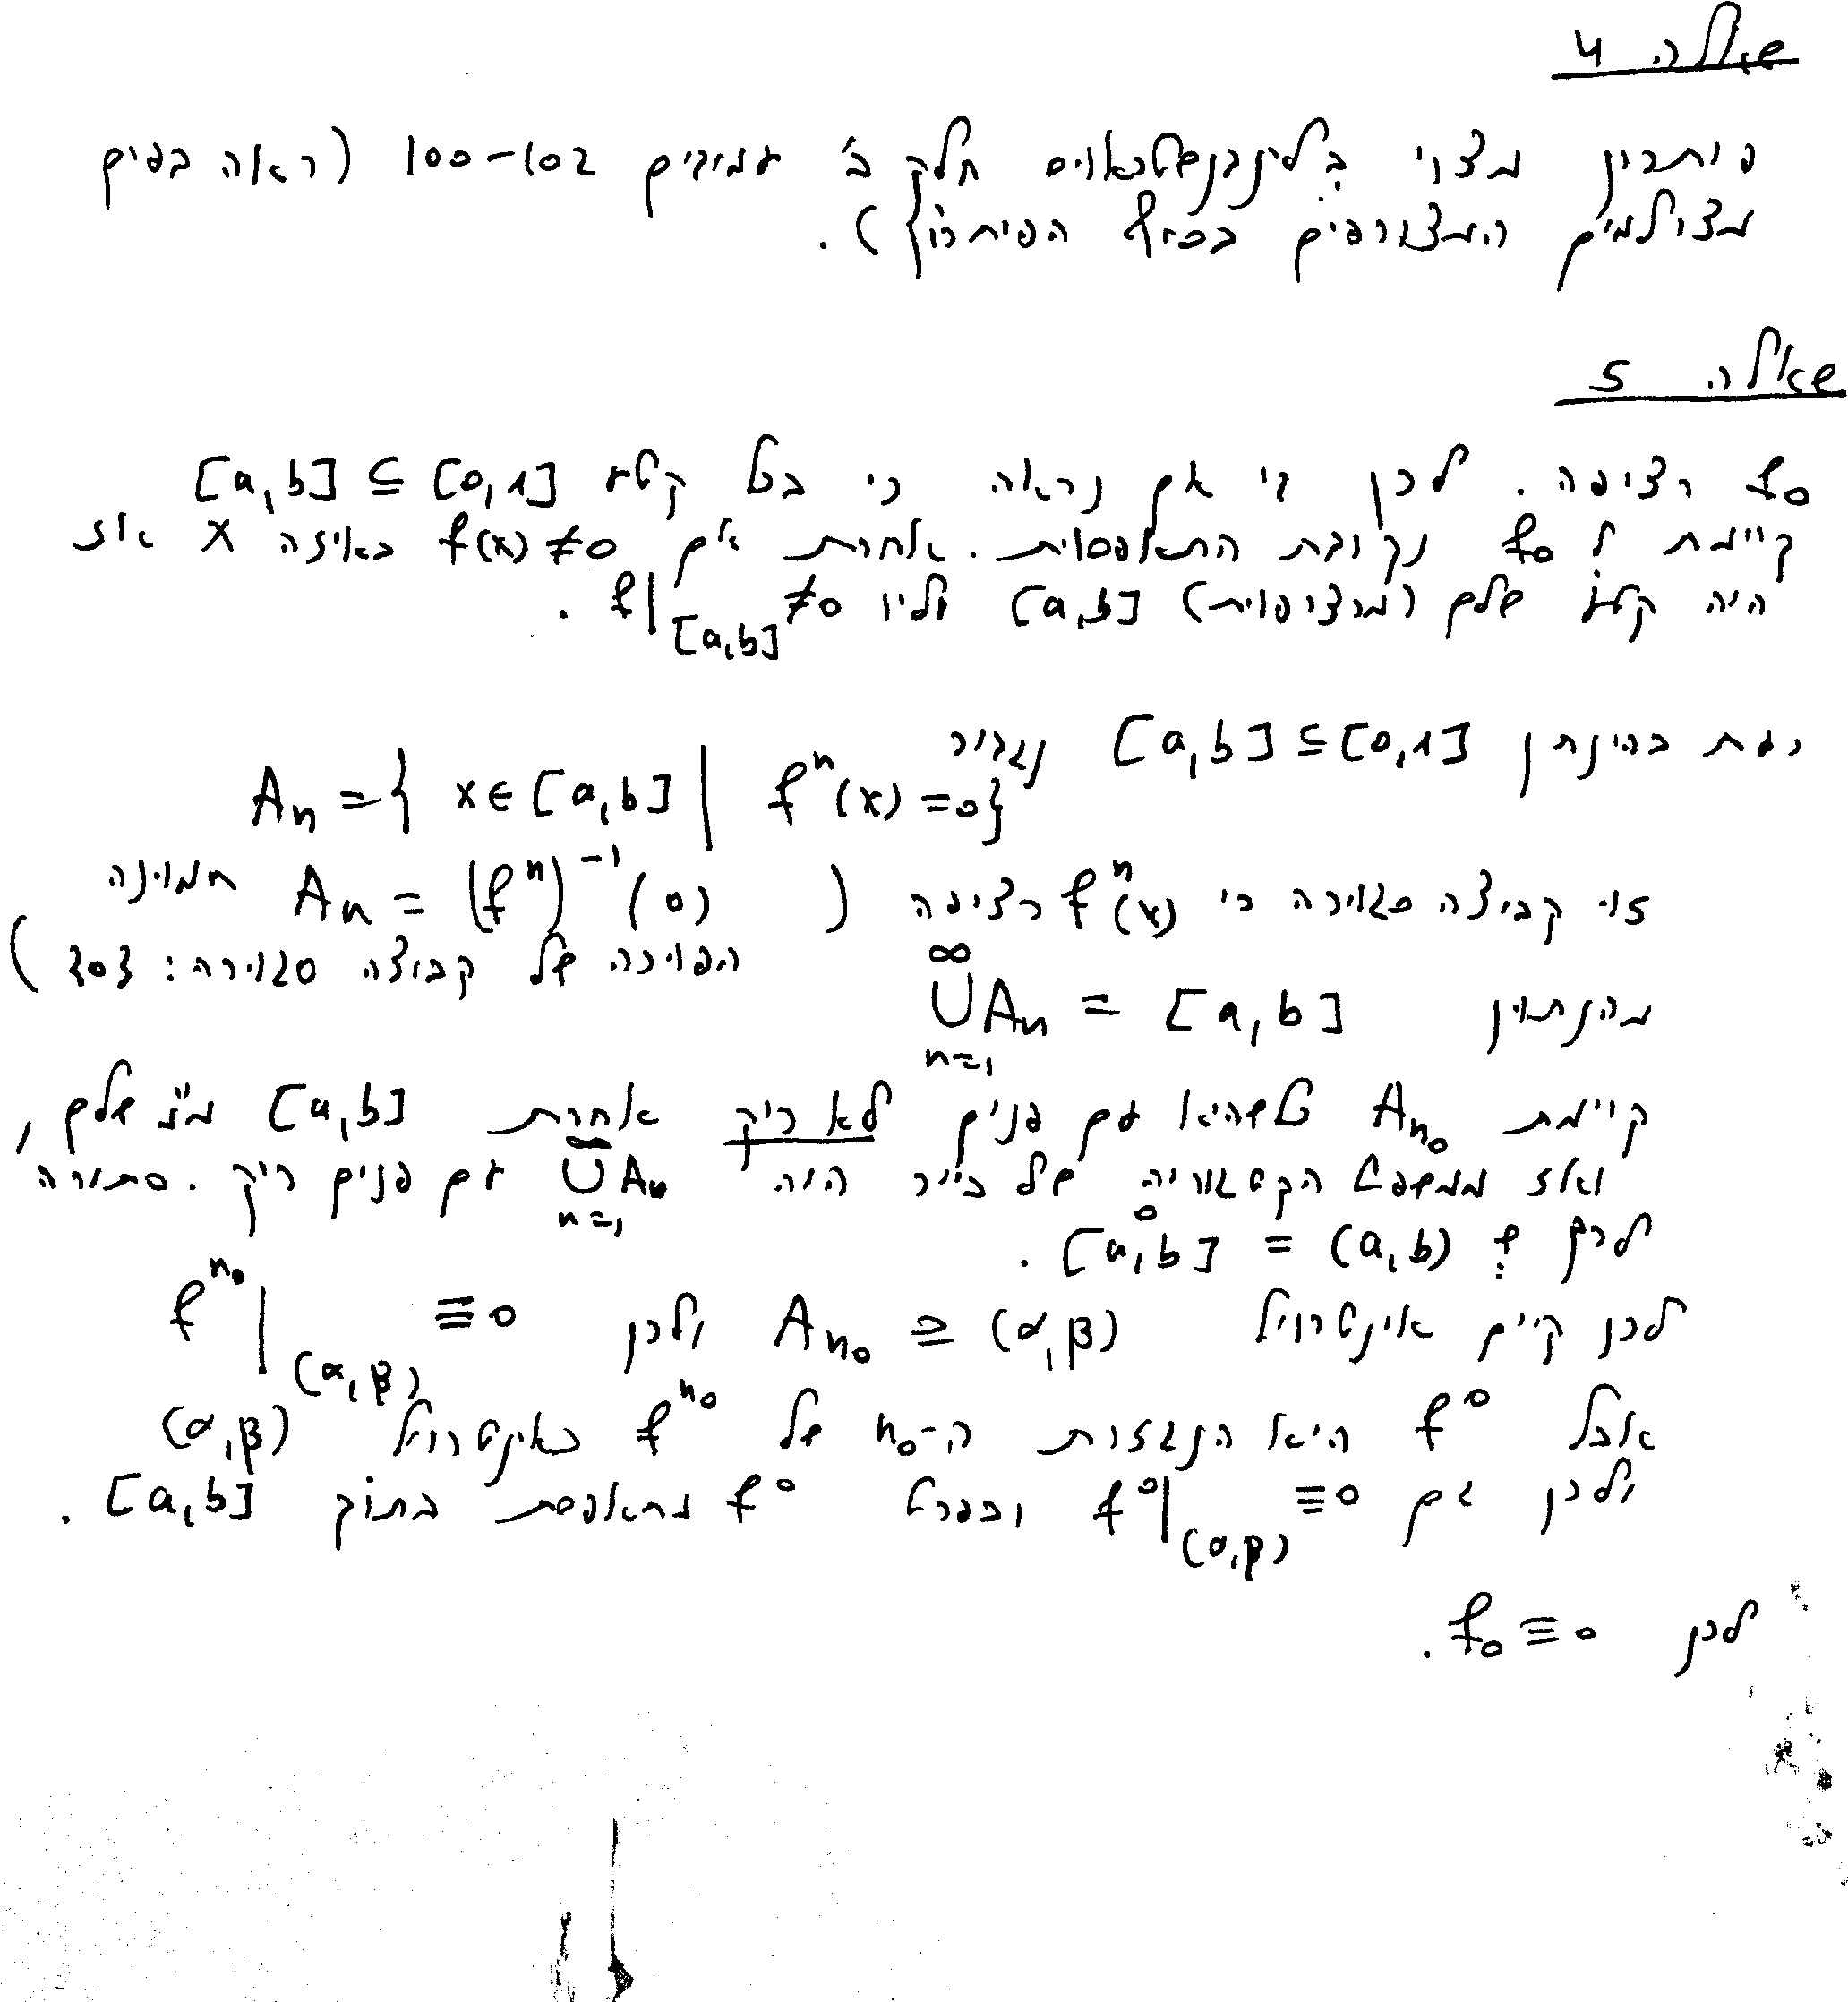 שאלה 4
פיתרון מצוי בלינדנשטראוס חלק ב' עמודים 100-102 (ראה דפים
מצולמים המצורפים בסוף הפיתרון).
שאלה 5
f₀ רציפה. לכן די אם נראה כי בכל קטע [a,b] ⊆ [0,1]
קיימת ל f₀ נקודת התאפסות. אחרת אם f(x) ≠ 0 באיזה x אז
היה קטע שלם (מרציפות) [a,b] עליו f|[a,b] ≠ 0.
כעת בהינתן [a,b] ⊆ [0,1] נגדיר
Aₙ = { x ∈ [a,b] | fⁿ(x) = 0 }
זוי קבוצה סגורה כי fⁿ(x) רציפה ( Aₙ = (fⁿ)⁻¹(0) תמונה
הפוכה של קבוצה סגורה: {0} )
מהנתון ⋃_{n=1}^{∞} Aₙ = [a,b]
קיימת Aₙ₀ שהיא עם פנים לא ריק אחרת [a,b] מ"מ שלם,
ואז ממשפט הקטגוריה של בייר היה ⋃_{n=1}^{∞} Aₙ עם פנים ריק. סתירה
לכך ש [a,b]° = (a,b).
לכן קיים אינטרוול Aₙ₀ ⊇ (α,β) ולכן fⁿ⁰|(α,β) ≡ 0
אבל f⁰ היא הנגזרת ה-n₀ של fⁿ⁰ באינטרוול (α,β)
ולכן גם f⁰|(α,β) ≡ 0 ובפרט f⁰ מתאפסת בתוך [a,b].
לכן f₀ ≡ 0.